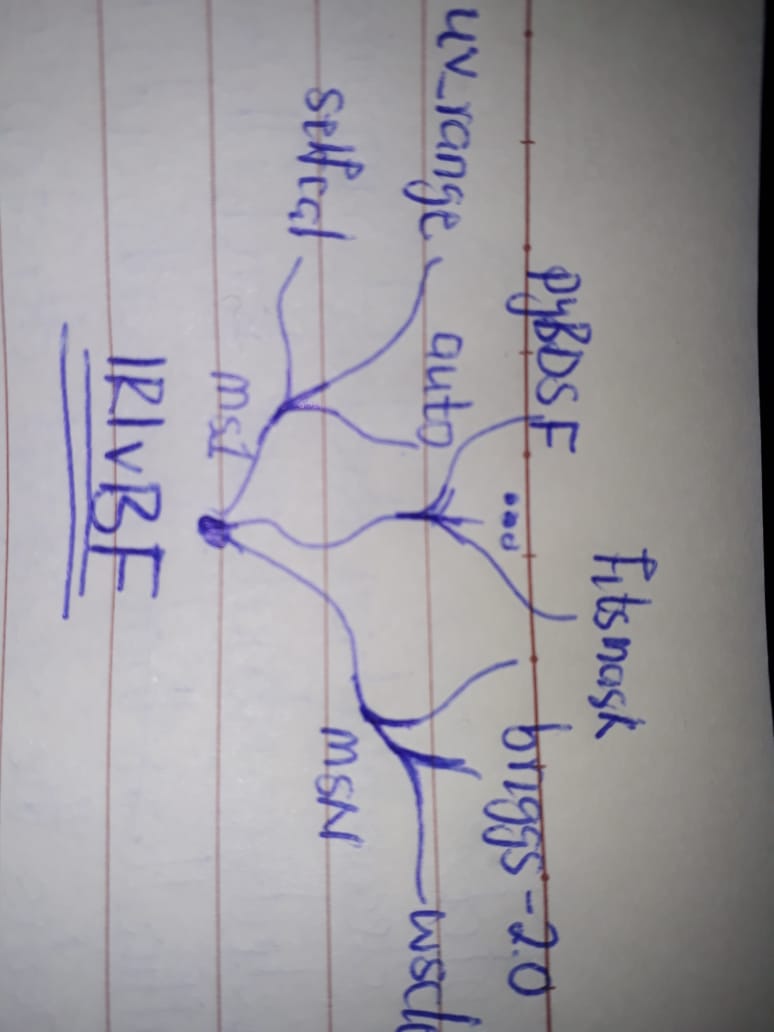 Fitsmask
pyBDSF
briggs -2.0
...
uv_range
auto
wscl
selfcal
msN
ms1
IRIvBF